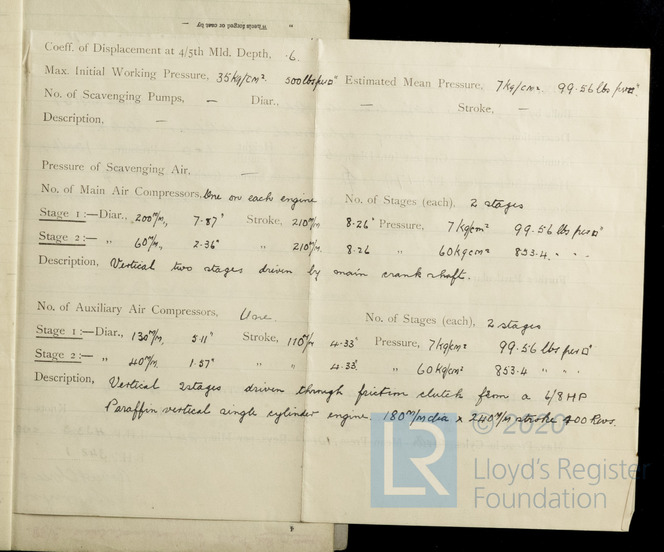 When is forged or cast by "
Coeff. of Displacement at 4/5th Mld. Depth, ·6.
Max. Initial Working Pressure, 35kg/cm². 500lbs per □" Estimated Mean Pressure, 7kg/cm². 99.56 lbs per □".
No. of Scavenging Pumps, — Diar., — Stroke, —
Description, —
Pressure of Scavenging Air, —
No. of Main Air Compressors, One on each engine No. of Stages (each), 2 stages
Stage 1:—Diar., 200 m/m, 7·87" Stroke, 210 m/m 8·26" Pressure, 7kg/cm² 99.56 lbs per □"
Stage 2:— „ 60 m/m, 2·36" „ 210 m/m. 8·26 „ 60kg/cm² 853·4. " " "
Description, Vertical two stages driven by main crank shaft.
No. of Auxiliary Air Compressors, One. No. of Stages (each), 2 stages
Stage 1:—Diar., 130 m/m, 5·11" Stroke, 110 m/m 4·33" Pressure, 7kg/cm² 99.56 lbs per □"
Stage 2:— „ 40 m/m. 1·57" „ „ 4·33" „ 60kg/cm² 853·4 " " "
Description, Vertical 2stages driven through friction clutch from a 6/8 HP
Paraffin vertical single cylinder engine. 180 m/m dia x 240 m/m stroke 400 Revs.
4
© 2020
LR
Lloyd's Register
Foundation